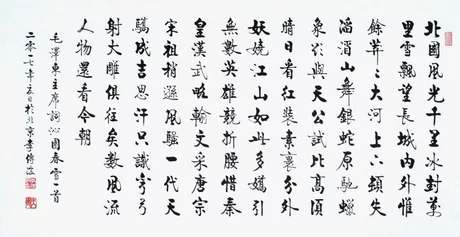 北國風光千里冰封萬
里雪飄望長城內外惟
餘莽々大河上下頓失
滔滔山舞銀蛇原馳蠟
象欲與天公試比高須
晴日看紅裝素裹分外
妖嬈江山如此多嬌引
無數英雄競折腰惜秦
皇漢武略輸文采唐宗
宋祖稍遜風騷一代天
驕成吉思汗只識彎弓
射大雕俱往矣數風流
人物還看今朝
毛澤東主席詞沁園春雪一首
二零一七年日於北京李傳波